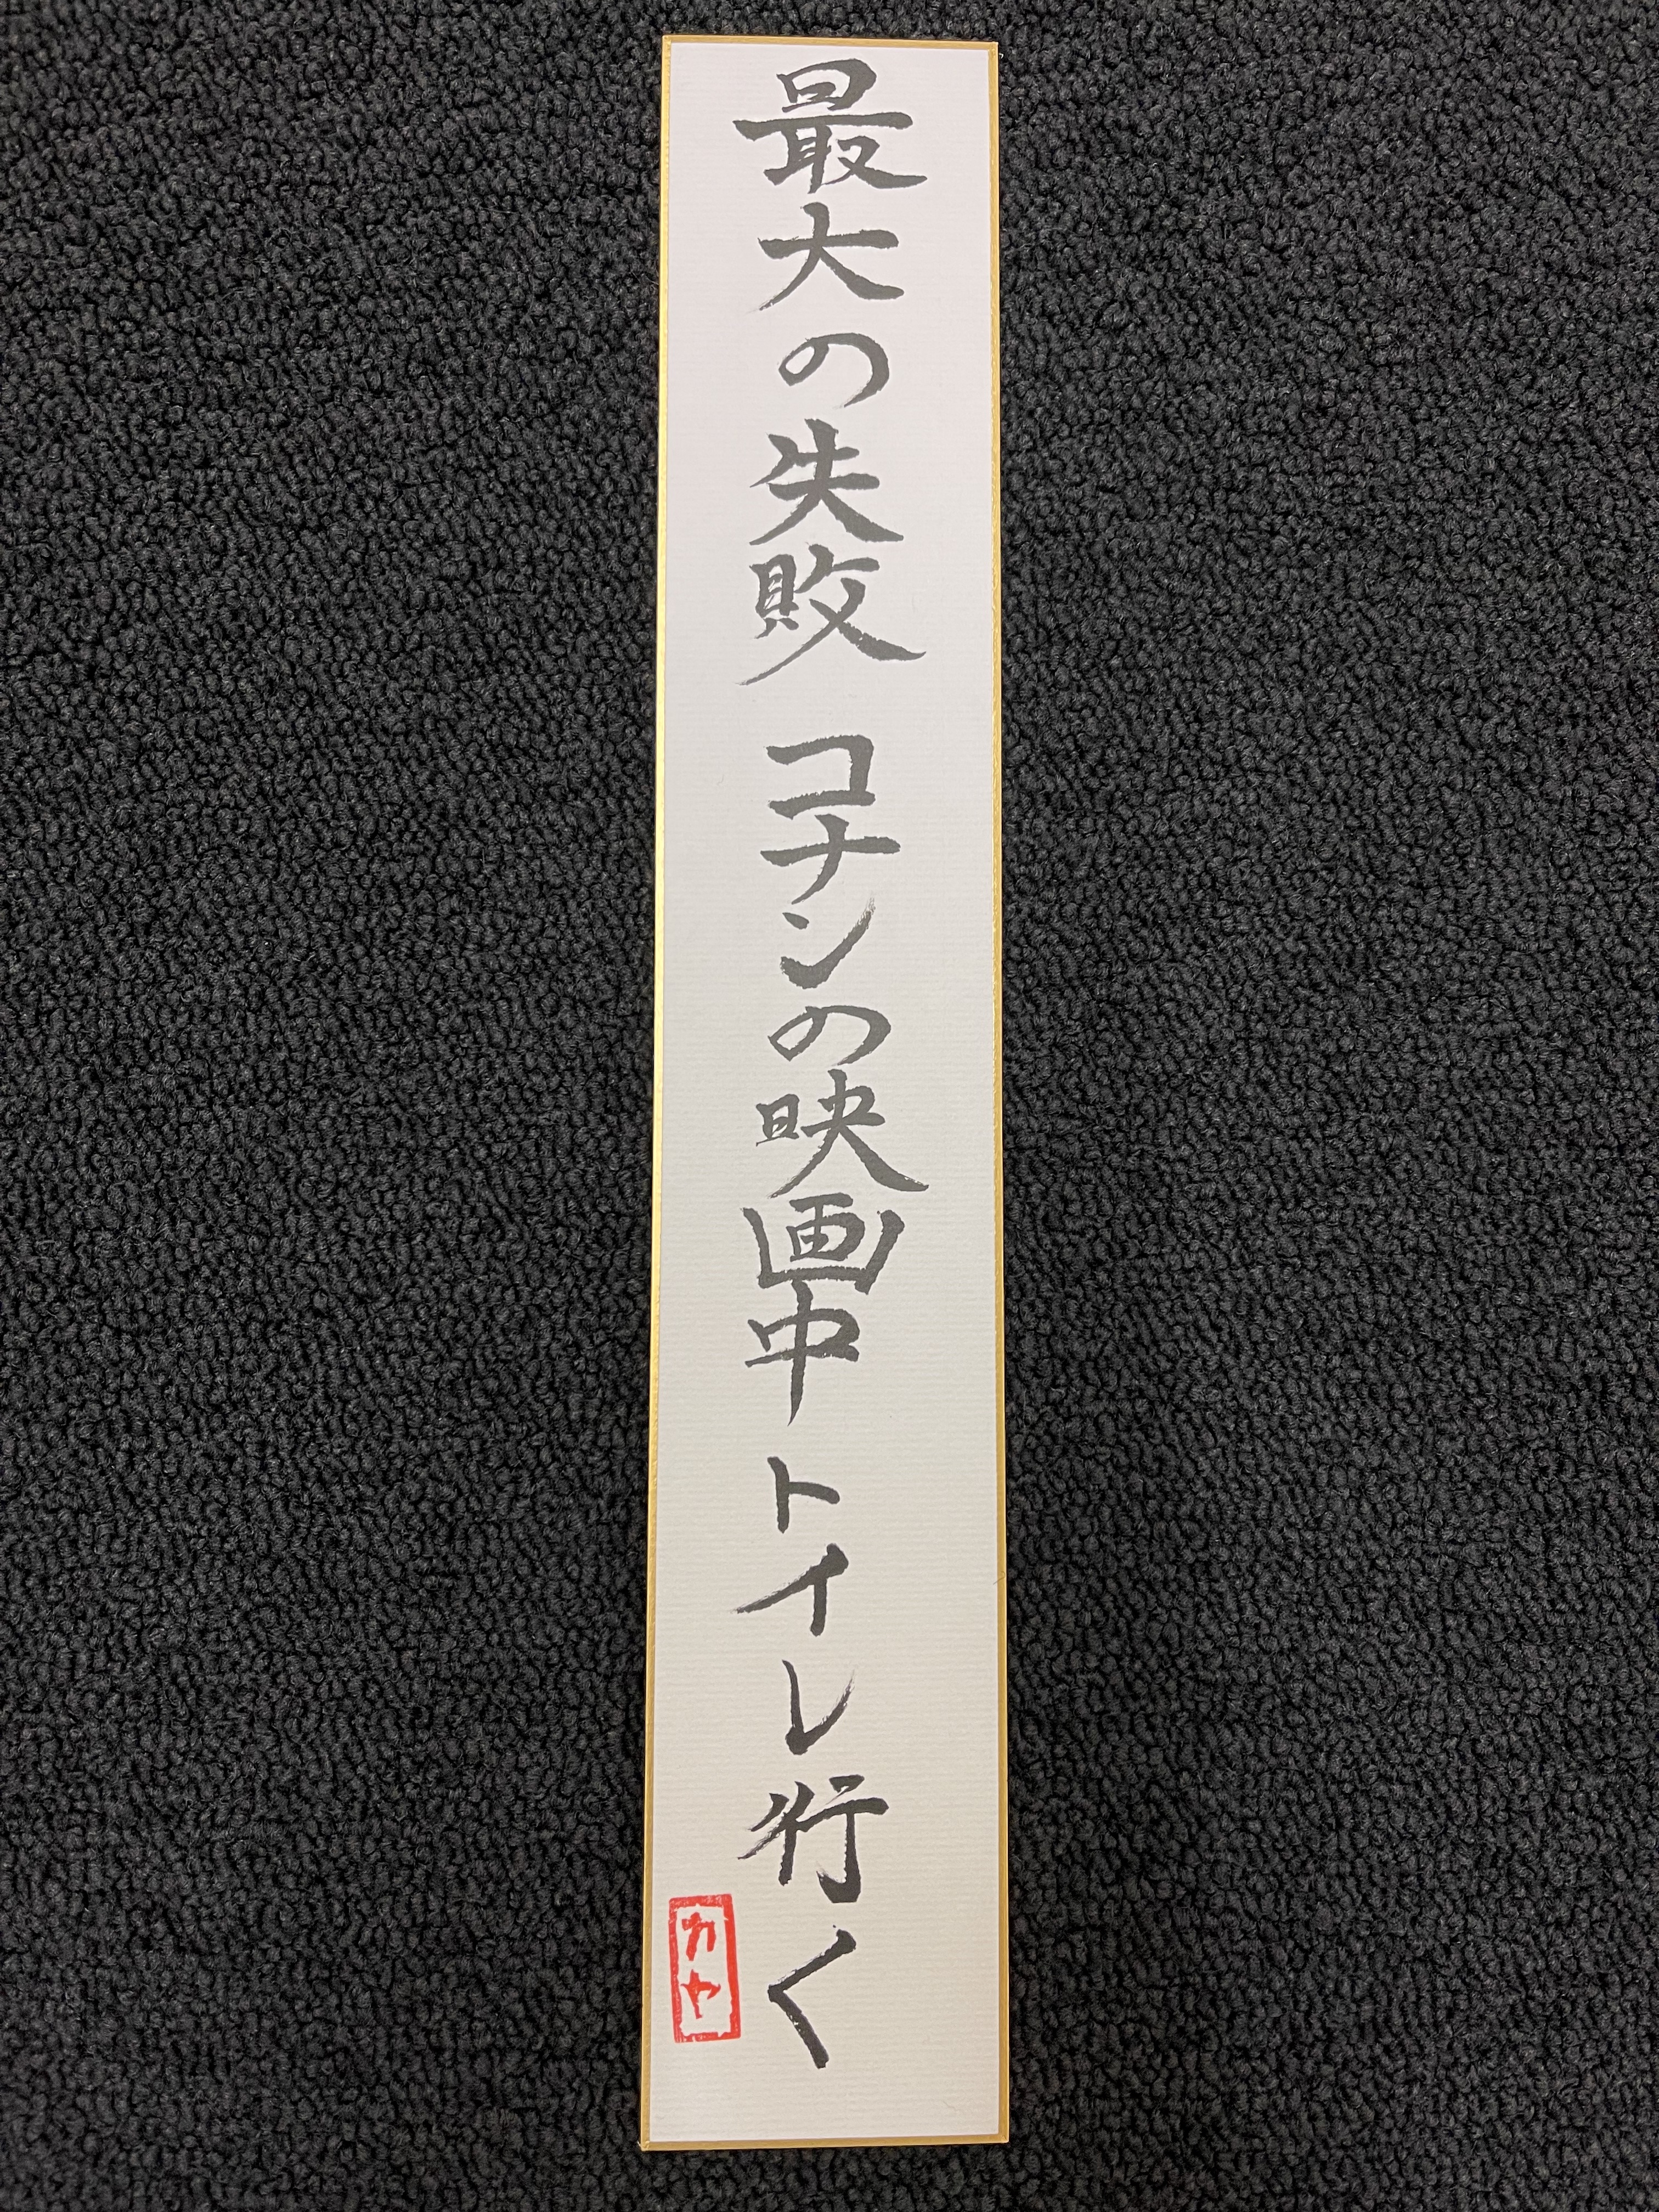 最大の失敗 コナンの映画中トイレ行く
カヤ